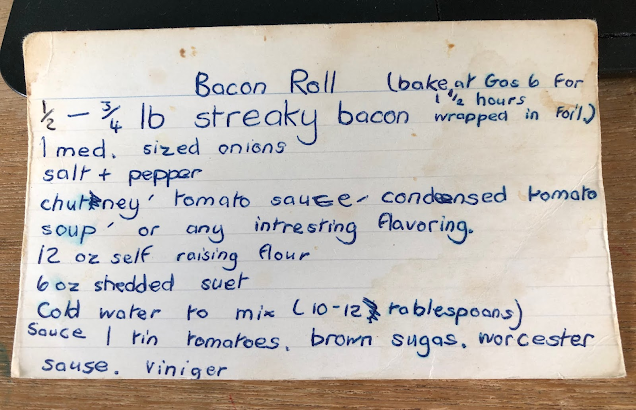 Bacon Roll (bake at Gas 6 For
1 1/2 hours
1/2 - 3/4 lb streaky bacon wrapped in Foil.)
1 med. sized onions
salt + pepper
chutney, tomato sauce, condensed tomato
soup, or any intresting flavoring.
12 oz self raising flour
6 oz shedded suet
Cold water to mix (10-12 tablespoons)
Sauce 1 tin tomatoes, brown sugas, worcester
sause. viniger